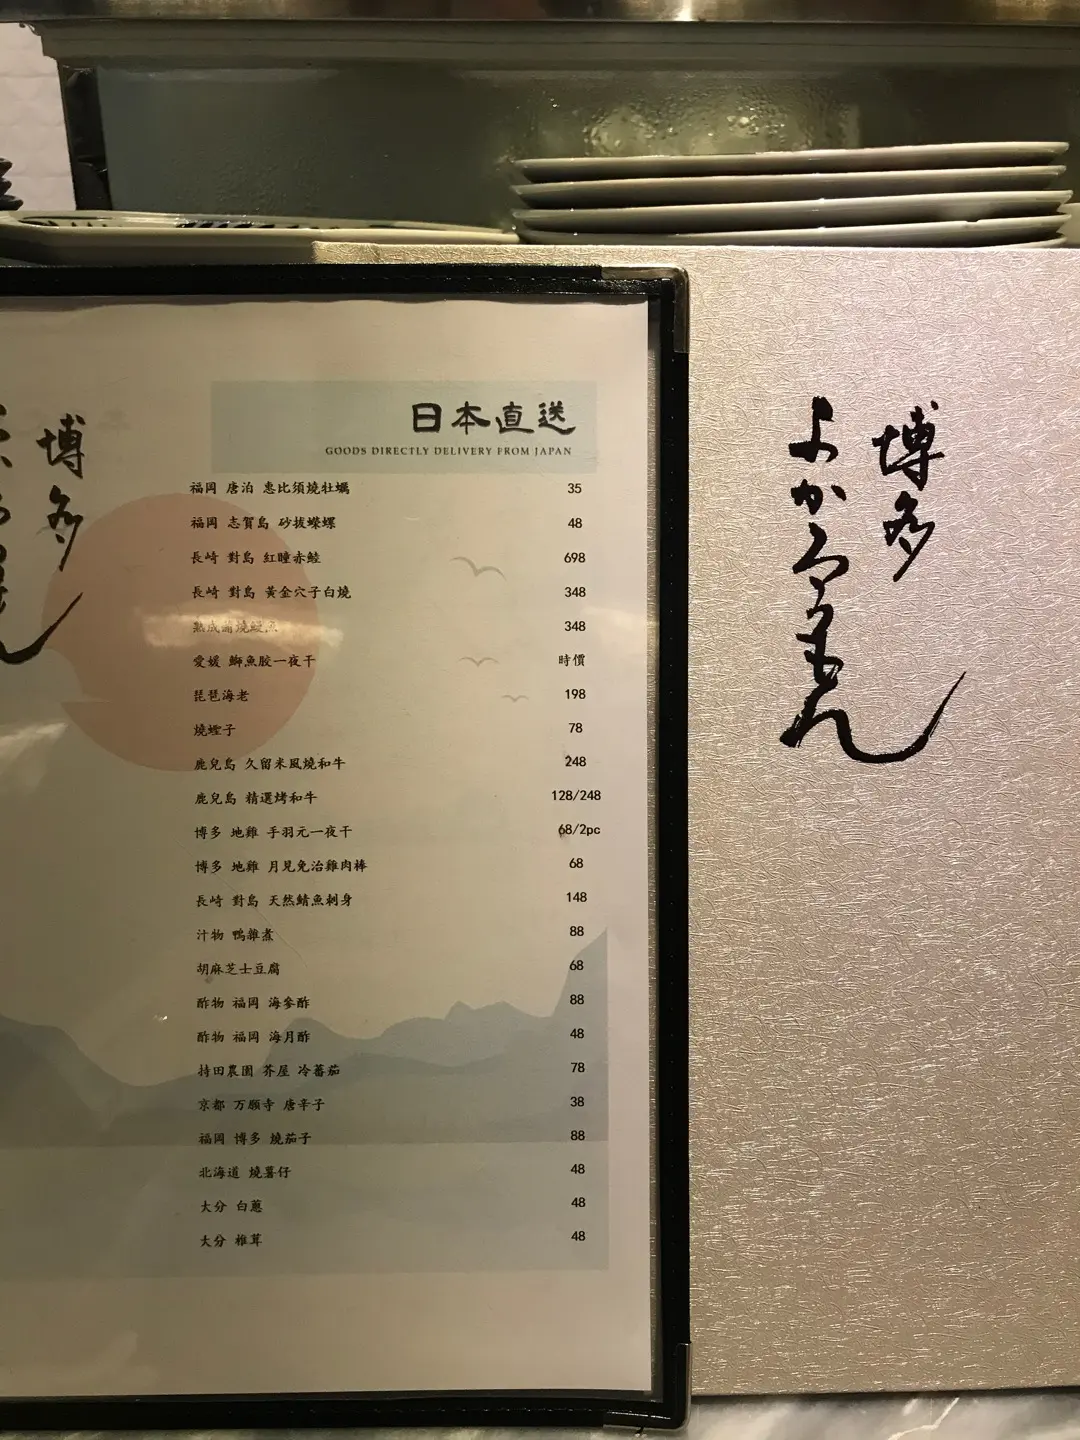 日本直送
GOODS DIRECTLY DELIVERY FROM JAPAN
福岡 唐泊 惠比須燒牡蠣 35
福岡 志賀島 砂拔蠑螺 48
長崎 對島 紅瞳赤鯥 698
長崎 對島 黃金穴子白燒 348
熟成蒲燒鰻魚 348
愛媛 鰤魚胶一夜干 時價
琵琶海老 198
燒蟶子 78
鹿兒島 久留米風燒和牛 248
鹿兒島 精選烤和牛 128/248
博多 地雞 手羽元一夜干 68/2pc
博多 地雞 月見免治雞肉棒 68
長崎 對島 天然鯖魚刺身 148
汁物 鴨雜煮 88
胡麻芝士豆腐 68
酢物 福岡 海參酢 88
酢物 福岡 海月酢 48
持田農園 芥屋 冷蕃茄 78
京都 万願寺 唐辛子 38
福岡 博多 燒茄子 88
北海道 燒薯仔 48
大分 白蔥 48
大分 椎茸 48
博多
博多
よかろうもん